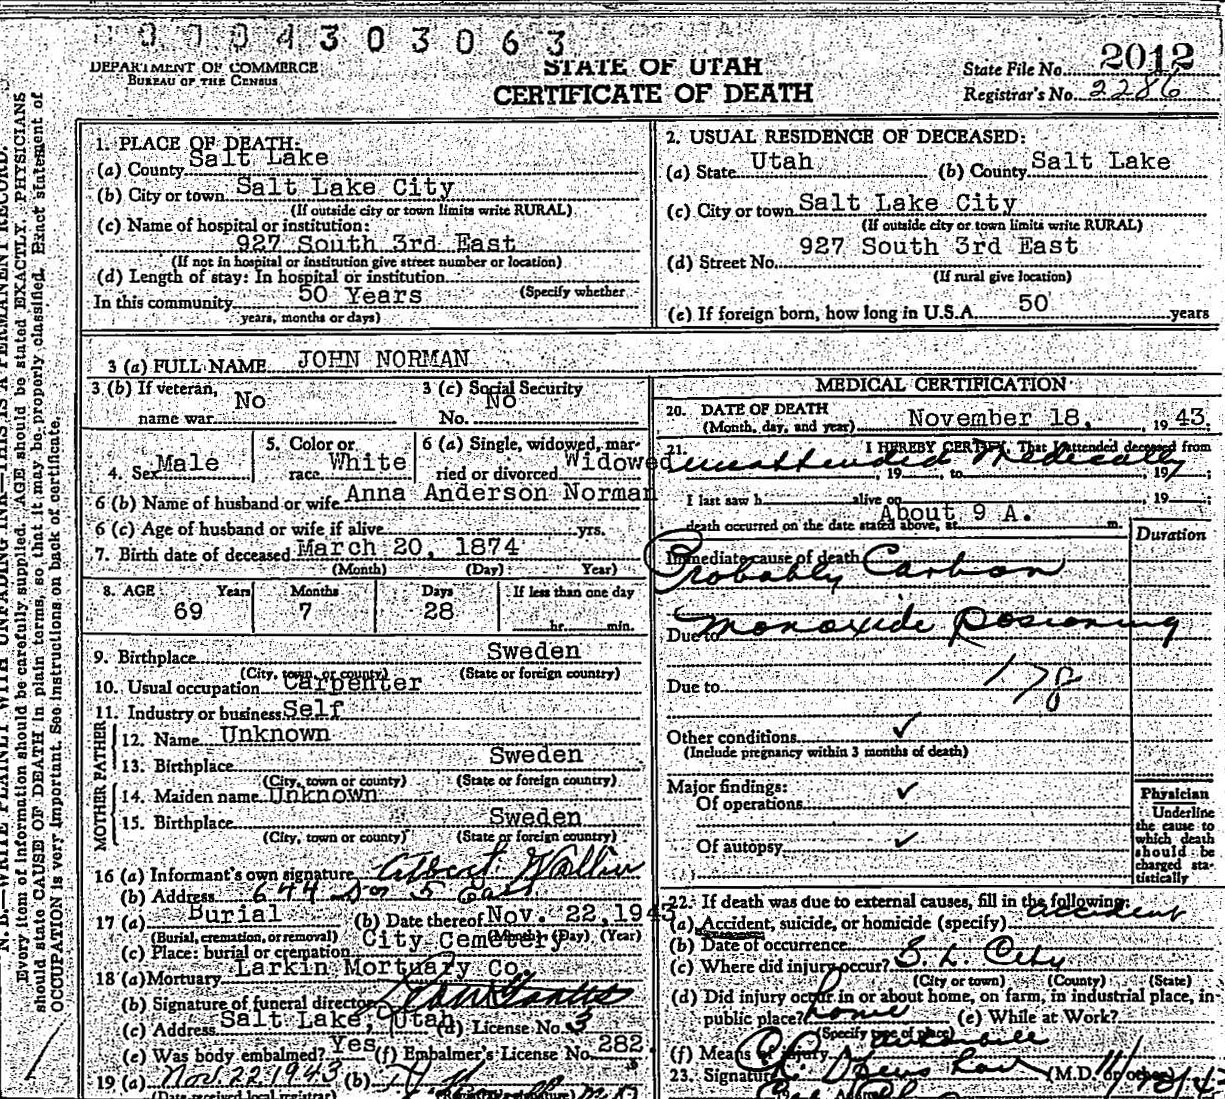 0 1 0 4 3 0 3 0 6 3
DEPARTMENT OF COMMERCE
BUREAU OF THE CENSUS
STATE OF UTAH
CERTIFICATE OF DEATH
State File No. 2012
Registrar's No. 2286
N. B.—WRITE PLAINLY WITH UNFADING INK—THIS IS A PERMANENT RECORD.
Every item of information should be carefully supplied. AGE should be stated EXACTLY. PHYSICIANS
should state CAUSE OF DEATH in plain terms, so that it may be properly classified. Exact statement of
OCCUPATION is very important. See instructions on back of certificate.
1. PLACE OF DEATH:
(a) County Salt Lake
(b) City or town Salt Lake City
(If outside city or town limits write RURAL)
(c) Name of hospital or institution:
927 South 3rd East
(If not in hospital or institution give street number or location)
(d) Length of stay: In hospital or institution
(Specify whether
In this community 50 Years
years, months or days)
2. USUAL RESIDENCE OF DECEASED:
(a) State Utah (b) County Salt Lake
(c) City or town Salt Lake City
(If outside city or town limits write RURAL)
(d) Street No. 927 South 3rd East
(If rural give location)
(e) If foreign born, how long in U.S.A. 50 years
3 (a) FULL NAME JOHN NORMAN
3 (b) If veteran, name war No
3 (c) Social Security No. No
4. Sex Male
5. Color or race White
6 (a) Single, widowed, married or divorced Widowed
6 (b) Name of husband or wife Anna Anderson Norman
6 (c) Age of husband or wife if alive yrs.
7. Birth date of deceased March 20, 1874
(Month) (Day) Year)
8. AGE Years Months Days If less than one day
69 7 28 hr. min.
9. Birthplace Sweden
(City, town, or county) (State or foreign country)
10. Usual occupation Carpenter
11. Industry or business Self
FATHER
12. Name Unknown
13. Birthplace Sweden
(City, town or county) (State or foreign country)
MOTHER
14. Maiden name Unknown
15. Birthplace Sweden
(City, town or county) (State or foreign country)
16 (a) Informant's own signature Albert Wallin
(b) Address 644 So 5 East
17 (a) Burial (b) Date thereof Nov. 22, 1943
(Burial, cremation, or removal) (Month) (Day) (Year)
(c) Place: burial or cremation City Cemetery
18 (a) Mortuary Larkin Mortuary Co.
(b) Signature of funeral director
(c) Address Salt Lake, Utah (d) License No. 3
(e) Was body embalmed? Yes (f) Embalmer's License No. 282
19 (a) Nov. 22 1943 (b)
(Date received local registrar)
MEDICAL CERTIFICATION
20. DATE OF DEATH
(Month, day, and year) November 18, 1943.
21. I HEREBY CERTIFY, That I attended deceased from
unattended Medically , 19 , to , 19 ;
I last saw h alive on , 19 ;
death occurred on the date stated above, at About 9 A. m.
Duration
Immediate cause of death
Probably Carbon
Due to Monoxide Poisoning
Due to 178
Other conditions ✓
(Include pregnancy within 3 months of death)
Major findings:
Of operations ✓
Of autopsy ✓
Physician
Underline
the cause to
which death
should be
charged sta-
tistically
22. If death was due to external causes, fill in the following:
(a) Accident, suicide, or homicide (specify) accident
(b) Date of occurrence
(c) Where did injury occur? S. L. City
(City or town) (County) (State)
(d) Did injury occur in or about home, on farm, in industrial place, in
public place? home (e) While at Work?
(Specify type of place)
(f) Means of injury
23. Signature (M.D. or other)